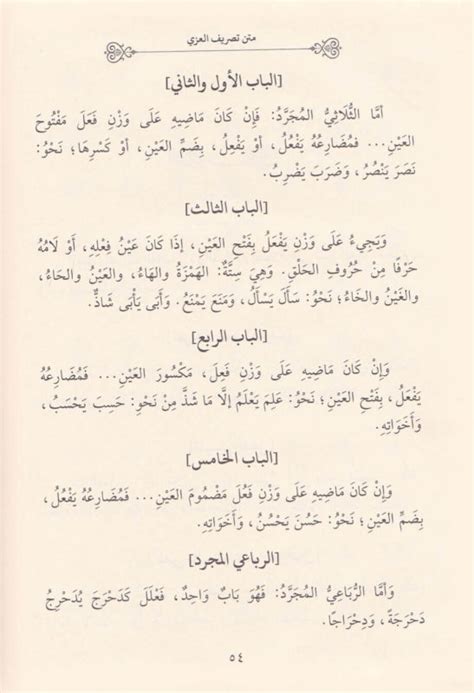 متن تصريف العزي
[الباب الأول والثاني]
أَمَّا الثُّلَاثِيُّ المُجَرَّدُ: فَإِنْ كَانَ مَاضِيهِ عَلَى وَزْنِ فَعَلَ مَفْتُوحَ
العَيْنِ... فَمُضَارِعُهُ يَفْعُلُ، أَوْ يَفْعِلُ، بِضَمِّ العَيْنِ، أَوْ كَسْرِهَا؛ نَحْوُ:
نَصَرَ يَنْصُرُ، وَضَرَبَ يَضْرِبُ.
[الباب الثالث]
وَيَجِيءُ عَلَى وَزْنِ يَفْعَلُ بِفَتْحِ العَيْنِ، إِذَا كَانَ عَيْنُ فِعْلِهِ، أَوْ لَامُهُ
حَرْفًا مِنْ حُرُوفِ الحَلْقِ. وَهِيَ سِتَّةٌ: الهَمْزَةُ وَالهَاءُ، وَالعَيْنُ وَالحَاءُ،
وَالغَيْنُ وَالخَاءُ؛ نَحْوُ: سَأَلَ يَسْأَلُ، وَمَنَعَ يَمْنَعُ. وَأَبَى يَأْبَى شَاذٌّ.
[الباب الرابع]
وَإِنْ كَانَ مَاضِيهِ عَلَى وَزْنِ فَعِلَ، مَكْسُورَ العَيْنِ... فَمُضَارِعُهُ
يَفْعَلُ، بِفَتْحِ العَيْنِ؛ نَحْوُ: عَلِمَ يَعْلَمُ إِلَّا مَا شَذَّ مِنْ نَحْوِ: حَسِبَ يَحْسِبُ،
وَأَخَوَاتِهِ.
[الباب الخامس]
وَإِنْ كَانَ مَاضِيهِ عَلَى وَزْنِ فَعُلَ مَضْمُومَ العَيْنِ... فَمُضَارِعُهُ يَفْعُلُ،
بِضَمِّ العَيْنِ؛ نَحْوُ: حَسُنَ يَحْسُنُ، وَأَخَوَاتِهِ.
[الرباعي المجرد]
وَأَمَّا الرُّبَاعِيُّ المُجَرَّدُ: فَهُوَ بَابٌ وَاحِدٌ، فَعْلَلَ كَدَحْرَجَ يُدَحْرِجُ
دَحْرَجَةً، وَدِحْرَاجًا.
٥٤